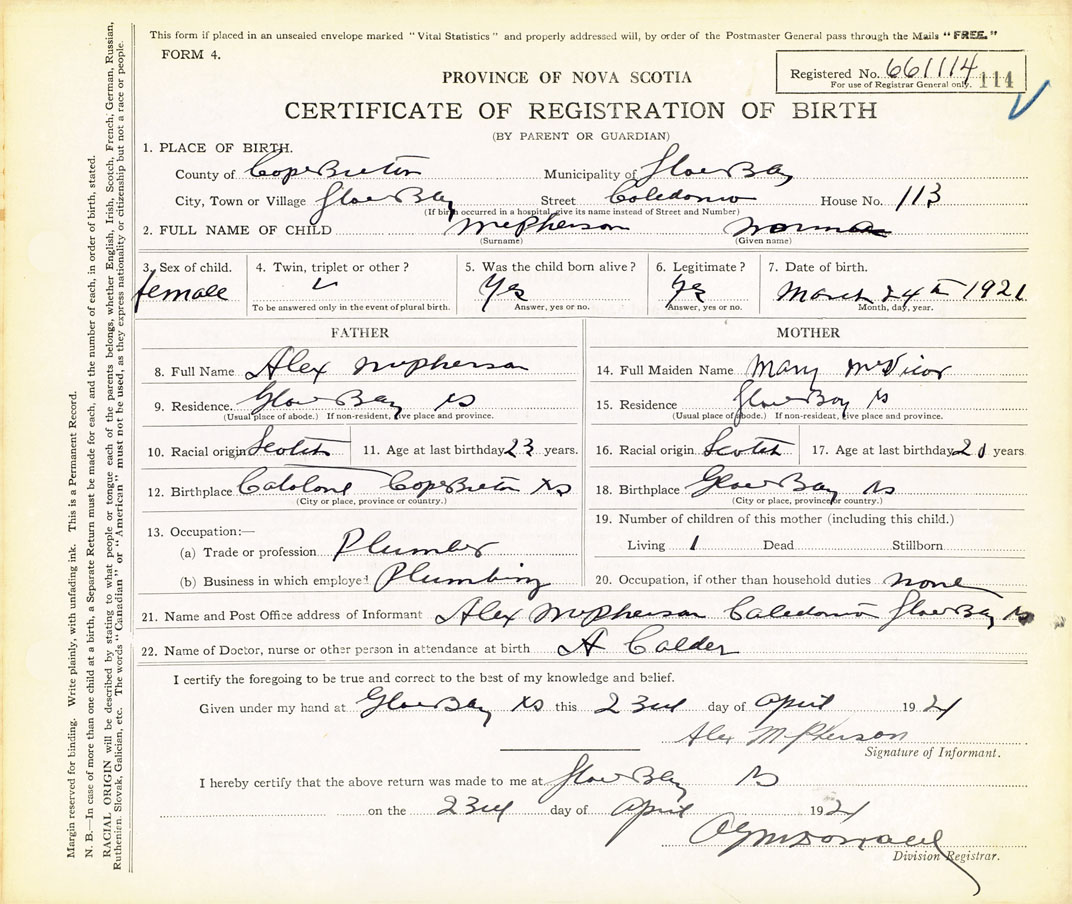 This form if placed in an unsealed envelope marked "Vital Statistics" and properly addressed will, by order of the Postmaster General pass through the Mails "FREE."
FORM 4.
Registered No. 661114 114
For use of Registrar General only.
PROVINCE OF NOVA SCOTIA
CERTIFICATE OF REGISTRATION OF BIRTH
(BY PARENT OR GUARDIAN)
1. PLACE OF BIRTH.
County of Cape Breton Municipality of Glace Bay
City, Town or Village Glace Bay Street Caledonia House No. 113
(If birth occurred in a hospital, give its name instead of Street and Number)
2. FULL NAME OF CHILD McPherson Norma
(Surname) (Given name)
3. Sex of child. 4. Twin, triplet or other? 5. Was the child born alive? 6. Legitimate? 7. Date of birth.
female Yes Yes March 24th 1921
To be answered only in the event of plural birth. Answer, yes or no. Answer, yes or no. Month, day, year.
FATHER
8. Full Name Alex McPherson
9. Residence. Glace Bay NS
(Usual place of abode.) If non-resident, give place and province.
10. Racial origin Scotch 11. Age at last birthday 23 years.
12. Birthplace Catalone Cape Breton NS
(City or place, province or country.)
13. Occupation:—
(a) Trade or profession Plumber
(b) Business in which employed Plumbing
MOTHER
14. Full Maiden Name Mary McVicar
15. Residence Glace Bay NS
(Usual place of abode.) If non-resident, give place and province.
16. Racial origin Scotch 17. Age at last birthday years
18. Birthplace Glace Bay NS
(City or place, province or country.)
19. Number of children of this mother (including this child.)
Living 1 Dead Stillborn
20. Occupation, if other than household duties none
21. Name and Post Office address of Informant Alex McPherson Caledonia Glace Bay NS
22. Name of Doctor, nurse or other person in attendance at birth A Calder
I certify the foregoing to be true and correct to the best of my knowledge and belief.
Given under my hand at Glace Bay NS this 23rd day of April 1921
Alex McPherson
Signature of Informant.
I hereby certify that the above return was made to me at Glace Bay NS
on the 23rd day of April 1921
McDonald
Division Registrar.
Margin reserved for binding. Write plainly, with unfading ink. This is a Permanent Record.
N. B.—In case of more than one child at a birth, a Separate Return must be made for each, and the number of each, in order of birth, stated.
RACIAL ORIGIN will be described by stating to what people or tongue each of the parents belongs, whether English, Irish, Scotch, French, German, Russian,
Ruthenien, Slovak, Galician, etc. The words "Canadian" or "American" must not be used, as they express nationality or citizenship but not a race or people.